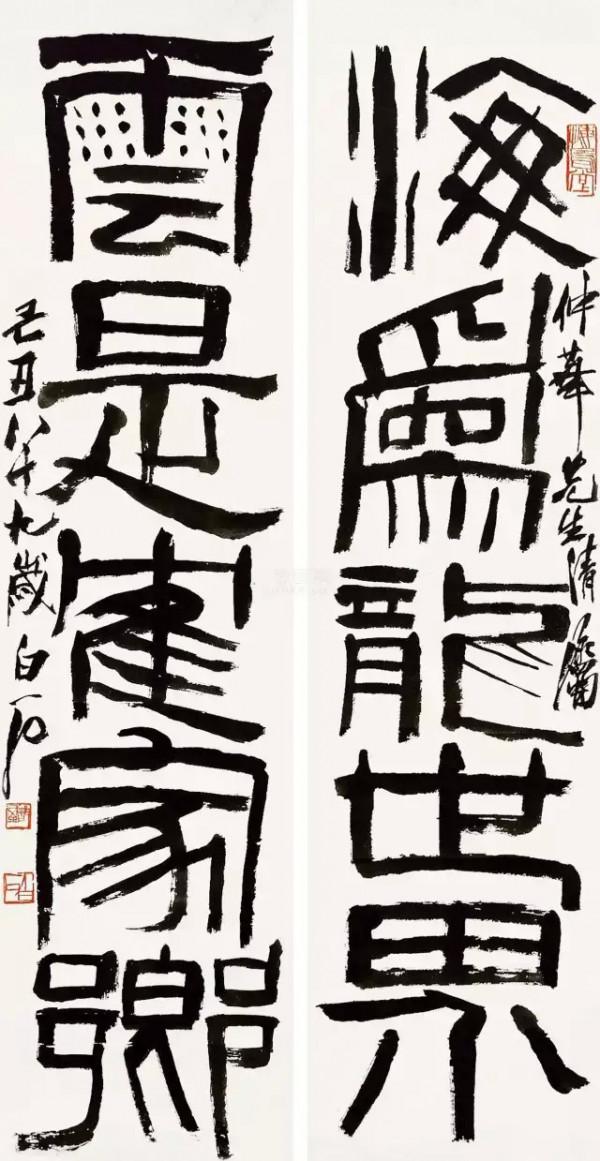 仲華先生清屬
海爲龍世界
雲是隺家鄉
己丑八十九歲白石